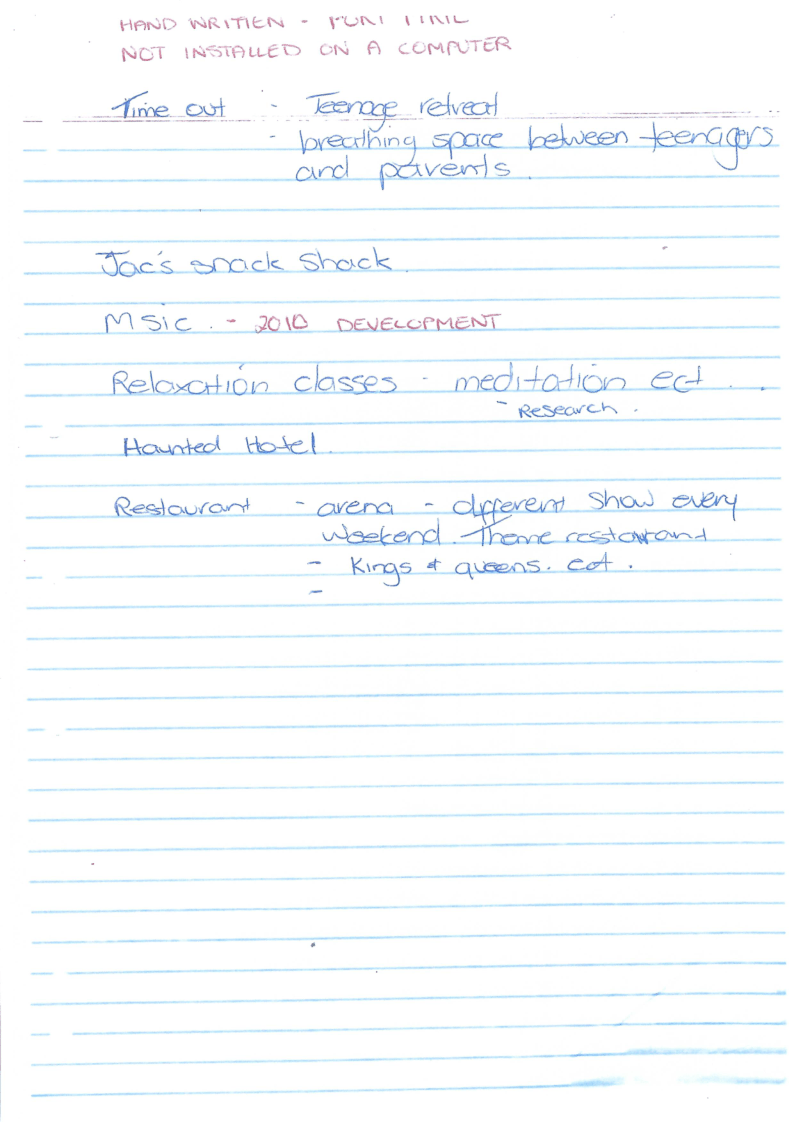 HAND WRITTEN -
NOT INSTALLED ON A COMPUTER
Time out - Teenage retreat
- breathing space between teenagers
and parents.
Jac's snack Shack.
MSic. - 2010 DEVELOPMENT
Relaxation classes - meditation ect ..
- Research.
Haunted Hotel.
Restaurant - arena - different show every
weekend. Theme restaurant
- Kings & queens. ect.
-